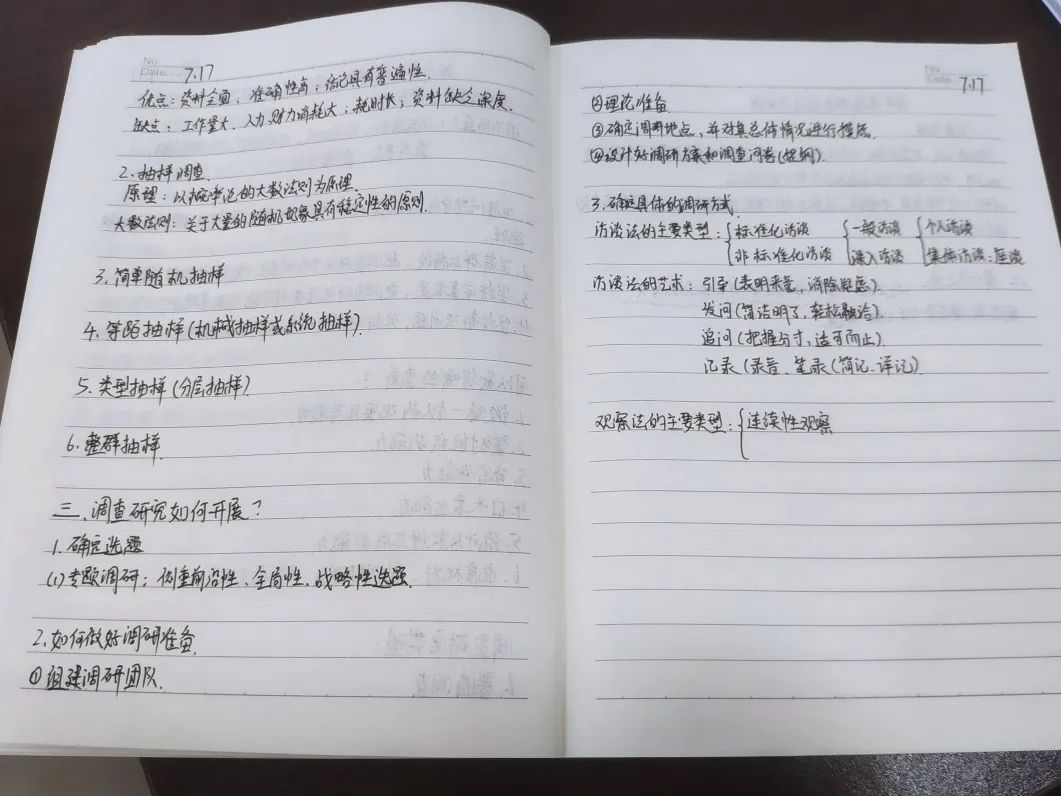 No.
Date. 7.17
优点：资料全面；准确性高；结论具有普遍性.
缺点：工作量大.人力.财力消耗大；耗时长；资料缺乏深度.
2.抽样调查.
原理：以概率论的大数法则为原理.
大数法则：关于大量的随机现象具有稳定性的原则.
3.简单随机抽样
4.等距抽样(机械抽样或系统抽样).
5.类型抽样(分层抽样)
6.整群抽样.
三、调查研究如何开展？
1.确定选题
(1)专题调研：侧重前沿性、全局性、战略性选题.
2.如何做好调研准备.
①组建调研团队.
No.
Date. 7.17
②理论准备
③确定调研地点，并对其总体情况进行摸底.
④设计好调研方案和调查问卷(提纲).
3.确定具体的调研方式.
访谈法的主要类型：{标准化访谈 {一般访谈 {个人访谈
非标准化访谈 深入访谈 集体访谈：座谈
访谈法的艺术：引导(表明来意，消除疑虑).
发问(简洁明了，轻松融洽).
追问(把握分寸，适可而止).
记录(录音、笔录(简记、详记)
观察法的主要类型：{连续性观察